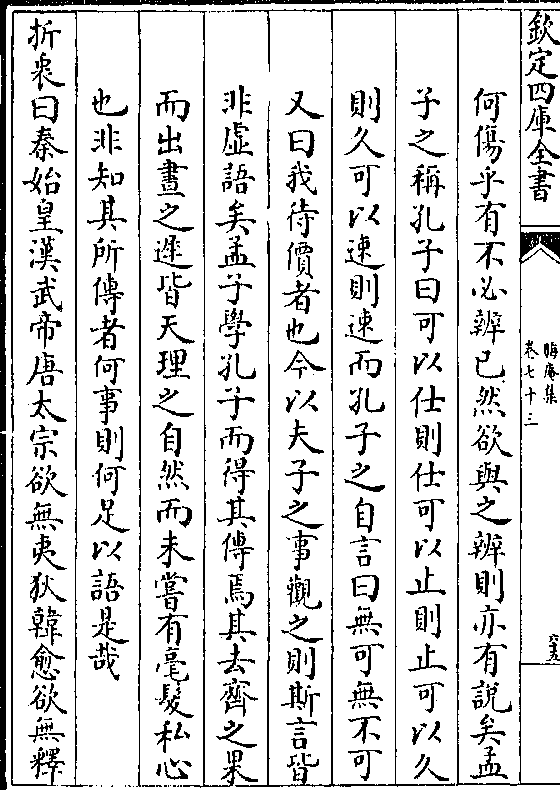 欽定四庫全書
晦庵集
卷七十三
六五
何傷乎有不必辨已然欲與之辨則亦有說矣孟
子之稱孔子曰可以仕則仕可以止則止可以久
則久可以速則速而孔子之自言曰無可無不可
又曰我待價者也今以夫子之事觀之則斯言皆
非虛語矣孟子學孔子而得其傳焉其去齊之果
而出晝之遲皆天理之自然而未嘗有毫髮私心
也非知其所傳者何事則何足以語是哉
折衷曰秦始皇漢武帝唐太宗欲無夷狄韓愈欲無釋